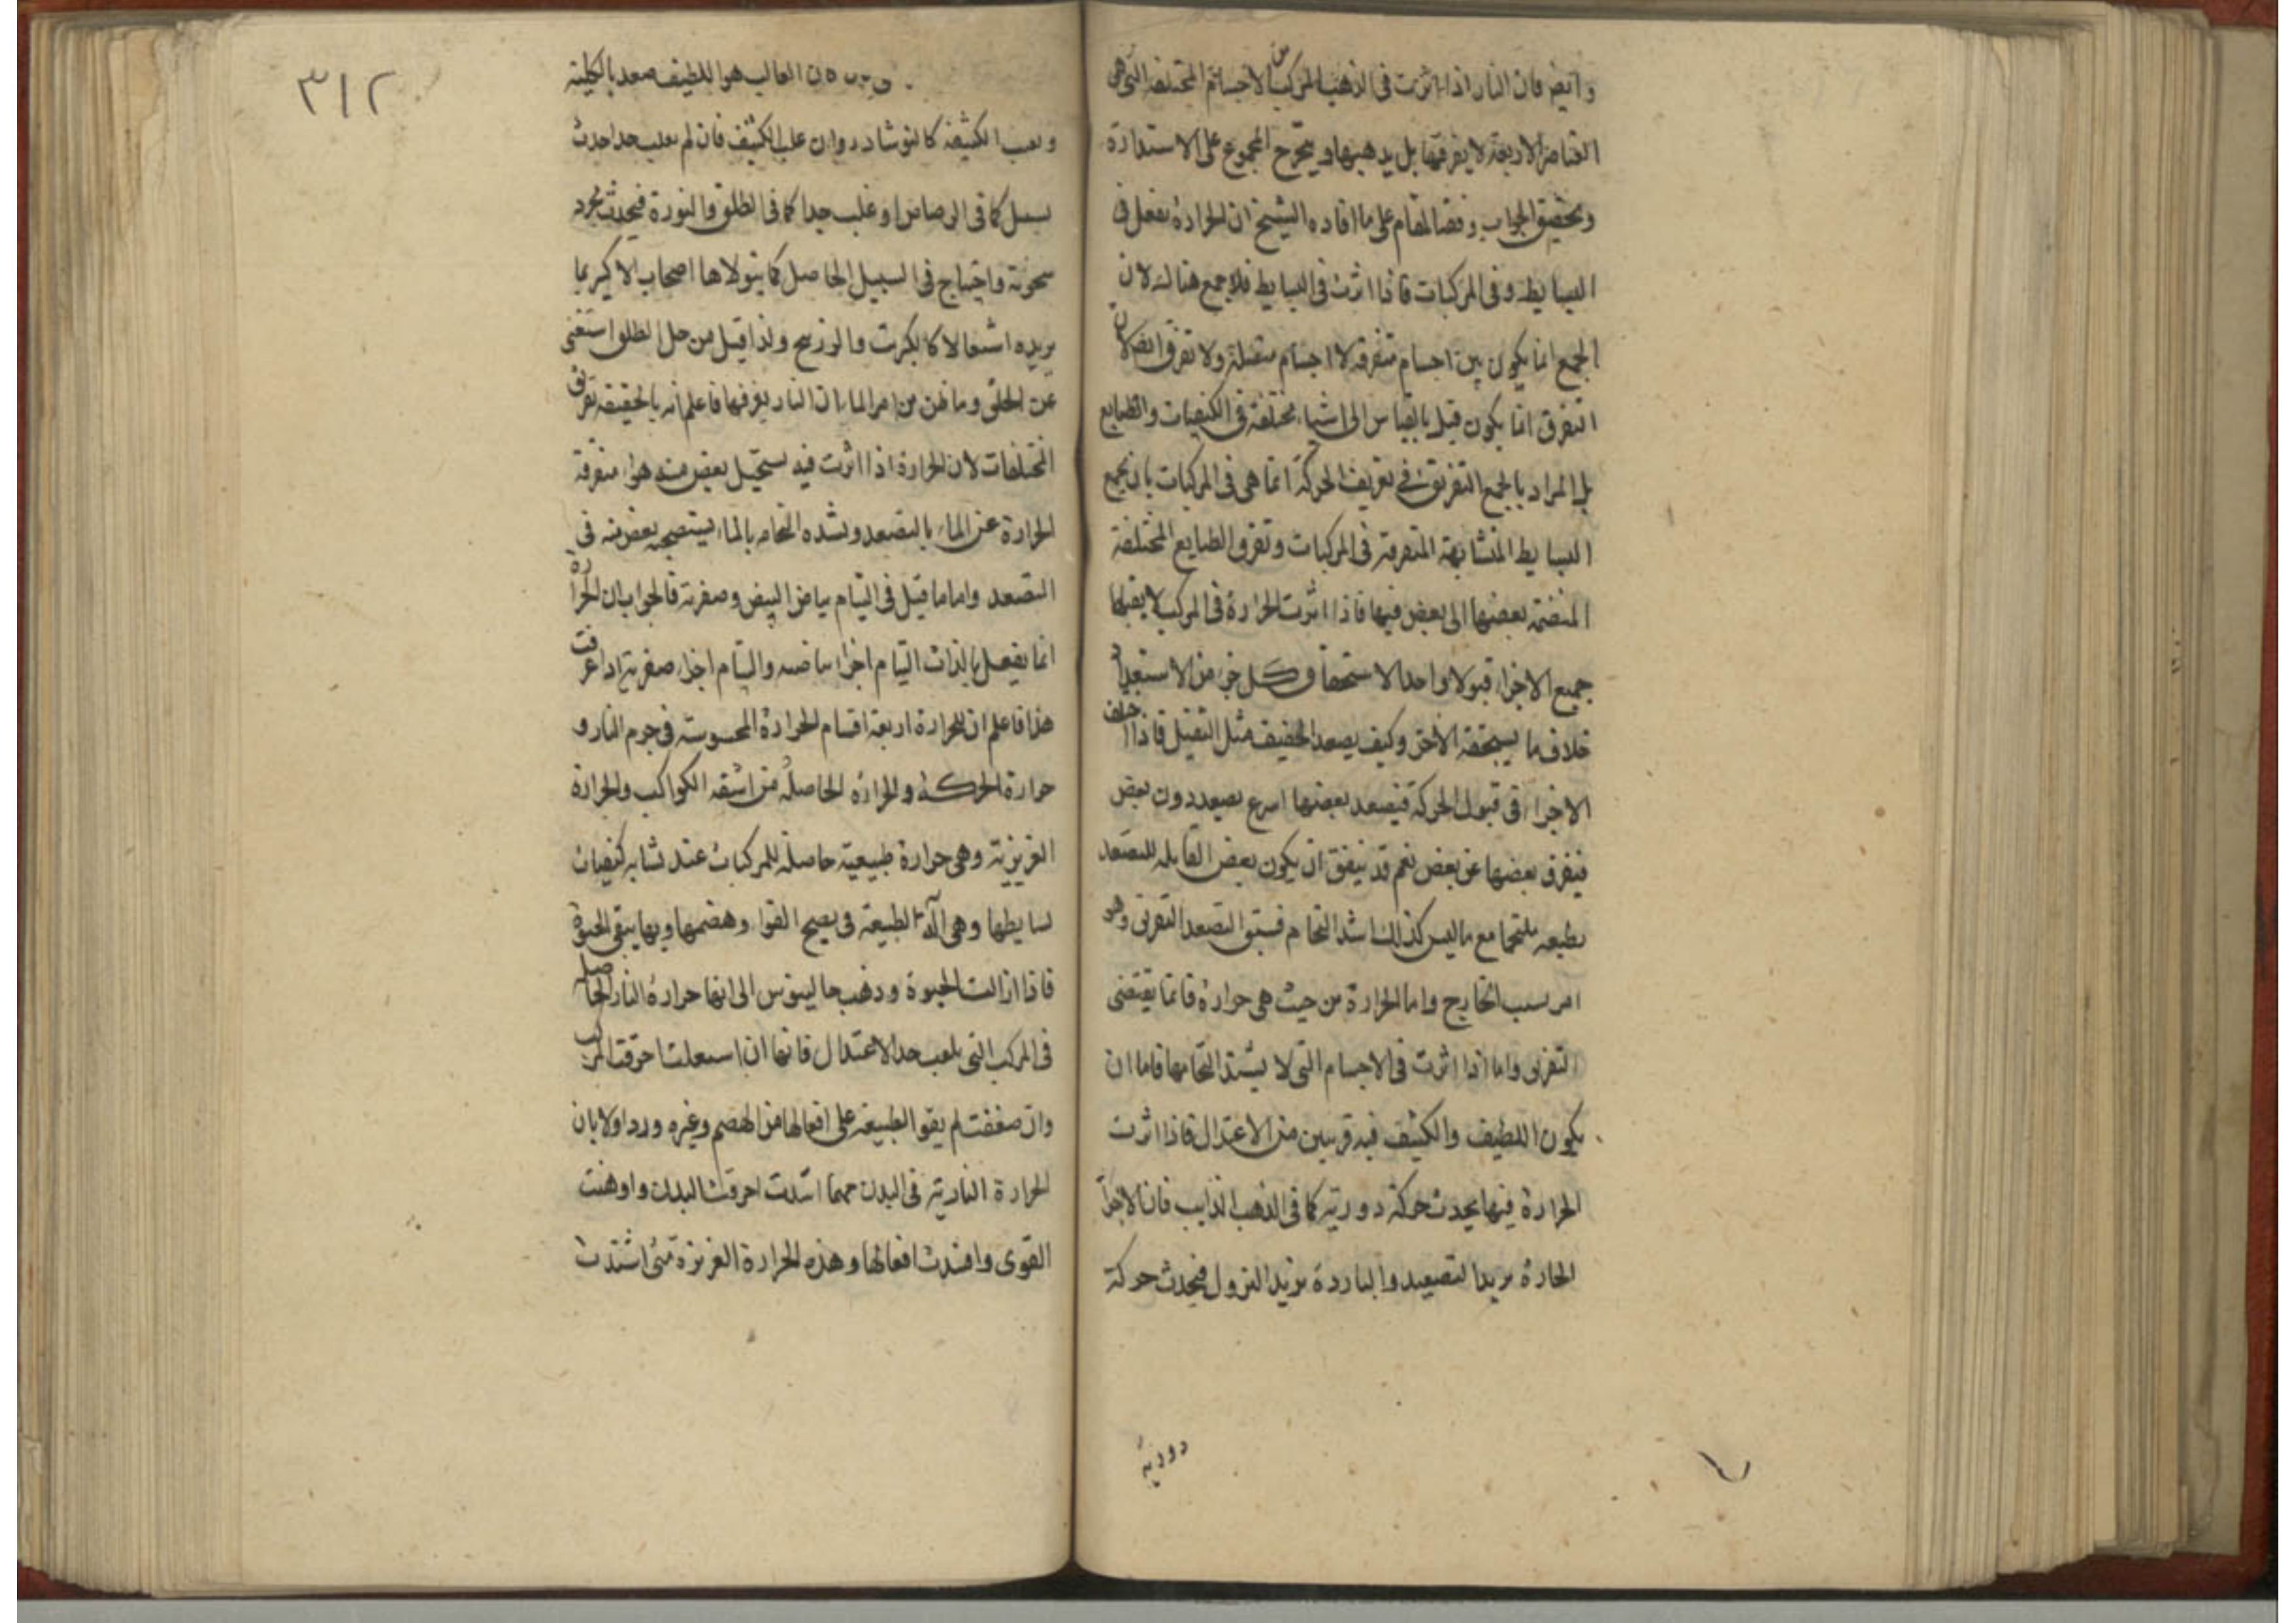 وايضا فان النار اذا اثرت في الذهب المركب من الاجسام المختلفة التي هي
العناصر الاربعة لا يفرقها بل يذهبها ويتحرج المجموع على الاستدارة
وتحقيق الجواب وفضا المقام على ما افاده الشيخ ان الحرارة يفعل في
البسايط وفي المركبات فاذا اثرت في البسايط فلا جمع هناك لان
الجمع انما يكون بين اجسام متفرقة لا اجسام متصلة ولا تفرق ايضا لان
التفرق انما يكون قبل بالقياس الى اشياء مختلفة في الكيفيات والطبايع
بل المراد بالجمع التفريق في تعريف الحركة انما هي في المركبات بان يجمع
البسايط المتشابهة المتفرقة في المركبات وتفرق الطبايع المختلفة
المنضمة بعضها الى بعض فيها فاذا اثرت الحرارة في المركب لا يقبلها
جميع الاجزاء قبولا واحدا لاستحقاق كل جزء من الاستعداد
خلاف ما يستحقه الاخر وكيف يصعد الخفيف مثل الثقيل فاذا اختلف
الاجزاء في قبول الحركة فيصعد بعضها اسرع بصعد دون بعض
فيفرق بعضها عن بعض نعم قد يتفق ان يكون بعض القابلة للتصعد
بطبعه ملتحما مع ما ليس كذلك اشد التحام فسبق التصعد التفرق وهو
امر بسبب الخارج واما الحرارة من حيث هي حرارة فانما يقتضي
التفرق واما اذا اثرت في الاجسام التي لا يشتد التحامها فاما ان
يكون اللطيف والكثيف فيه قريبين من الاعتدال فاذا اثرت
الحرارة فيها يحدث حركة دورية كما في الذهب الذايب فان الاجزاء
الحارة يريد التصعيد والباردة يريد النزول فيحدث حركة
دورية
٣١٢
ان الغالب هو اللطيف صعد بالكلية
الكثيفة كالنوشادر وان غلب الكثيف فان لم يغلب جدا حدث
يسيل كما في الرصاص او غلب جدا كما في الطلق والنورة فيحدث مجرد
سخونة واحتياج في السبيل الحاصل كما يتولاها اصحاب الاكير بما
يريده اشتعالا كالكبريت والزرنيح ولذا قيل من حل الطلق استغنى
عن الخلق وما ظن من امر الماء ان النار يفرقها فاعلم انه بالحقيقة تفريق
المختلفات لان الحرارة اذا اثرت فيه يستحيل بعض منه هواء متفرقة
الحرارة عن الماء بالتصعد وبشدة التحامه بالماء يستصحبه بعض منه في
التصعد واما ما قيل في التيام بياض البيض وصفرته فالجواب ان الحرارة
انما يفعل بالذات التيام اجزاء بياضه والتيام اجزاء صفرته اذا عرفت
هذا فاعلم ان للحرارة اربعة اقسام الحرارة المحسوسة في جرم النار و
حرارة الحركة والحرارة الحاصلة من اشعة الكواكب والحرارة
الغريزية وهي حرارة طبيعية حاصلة للمركبات عند تشابه كيفيات
بسايطها وهي آلة الطبيعة في نصيح القوا وهضمها وبها يبقى الحيوة
فاذا ازالت الحيوة وذهب جالينوس الى انها حرارة النار الحاصلة
في المركب التي بلغت حد الاعتدال فانها ان اشتعلت احرقت المركب
وان ضعفت لم يقو الطبيعة على افعالها من الهضم وغيره ورد اولا بان
الحرارة النارية في البدن مهما اشتدت احرقت البدن واوهنت
القوى وافسدت افعالها وهذه الحرارة الغريزة متى اشتدت